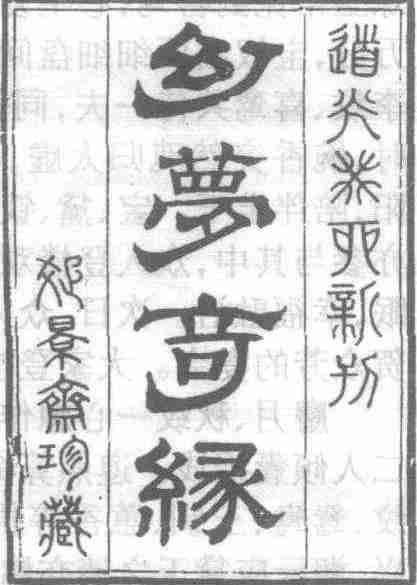 道光癸卯新刊
幻夢奇緣
疏景齋珍藏